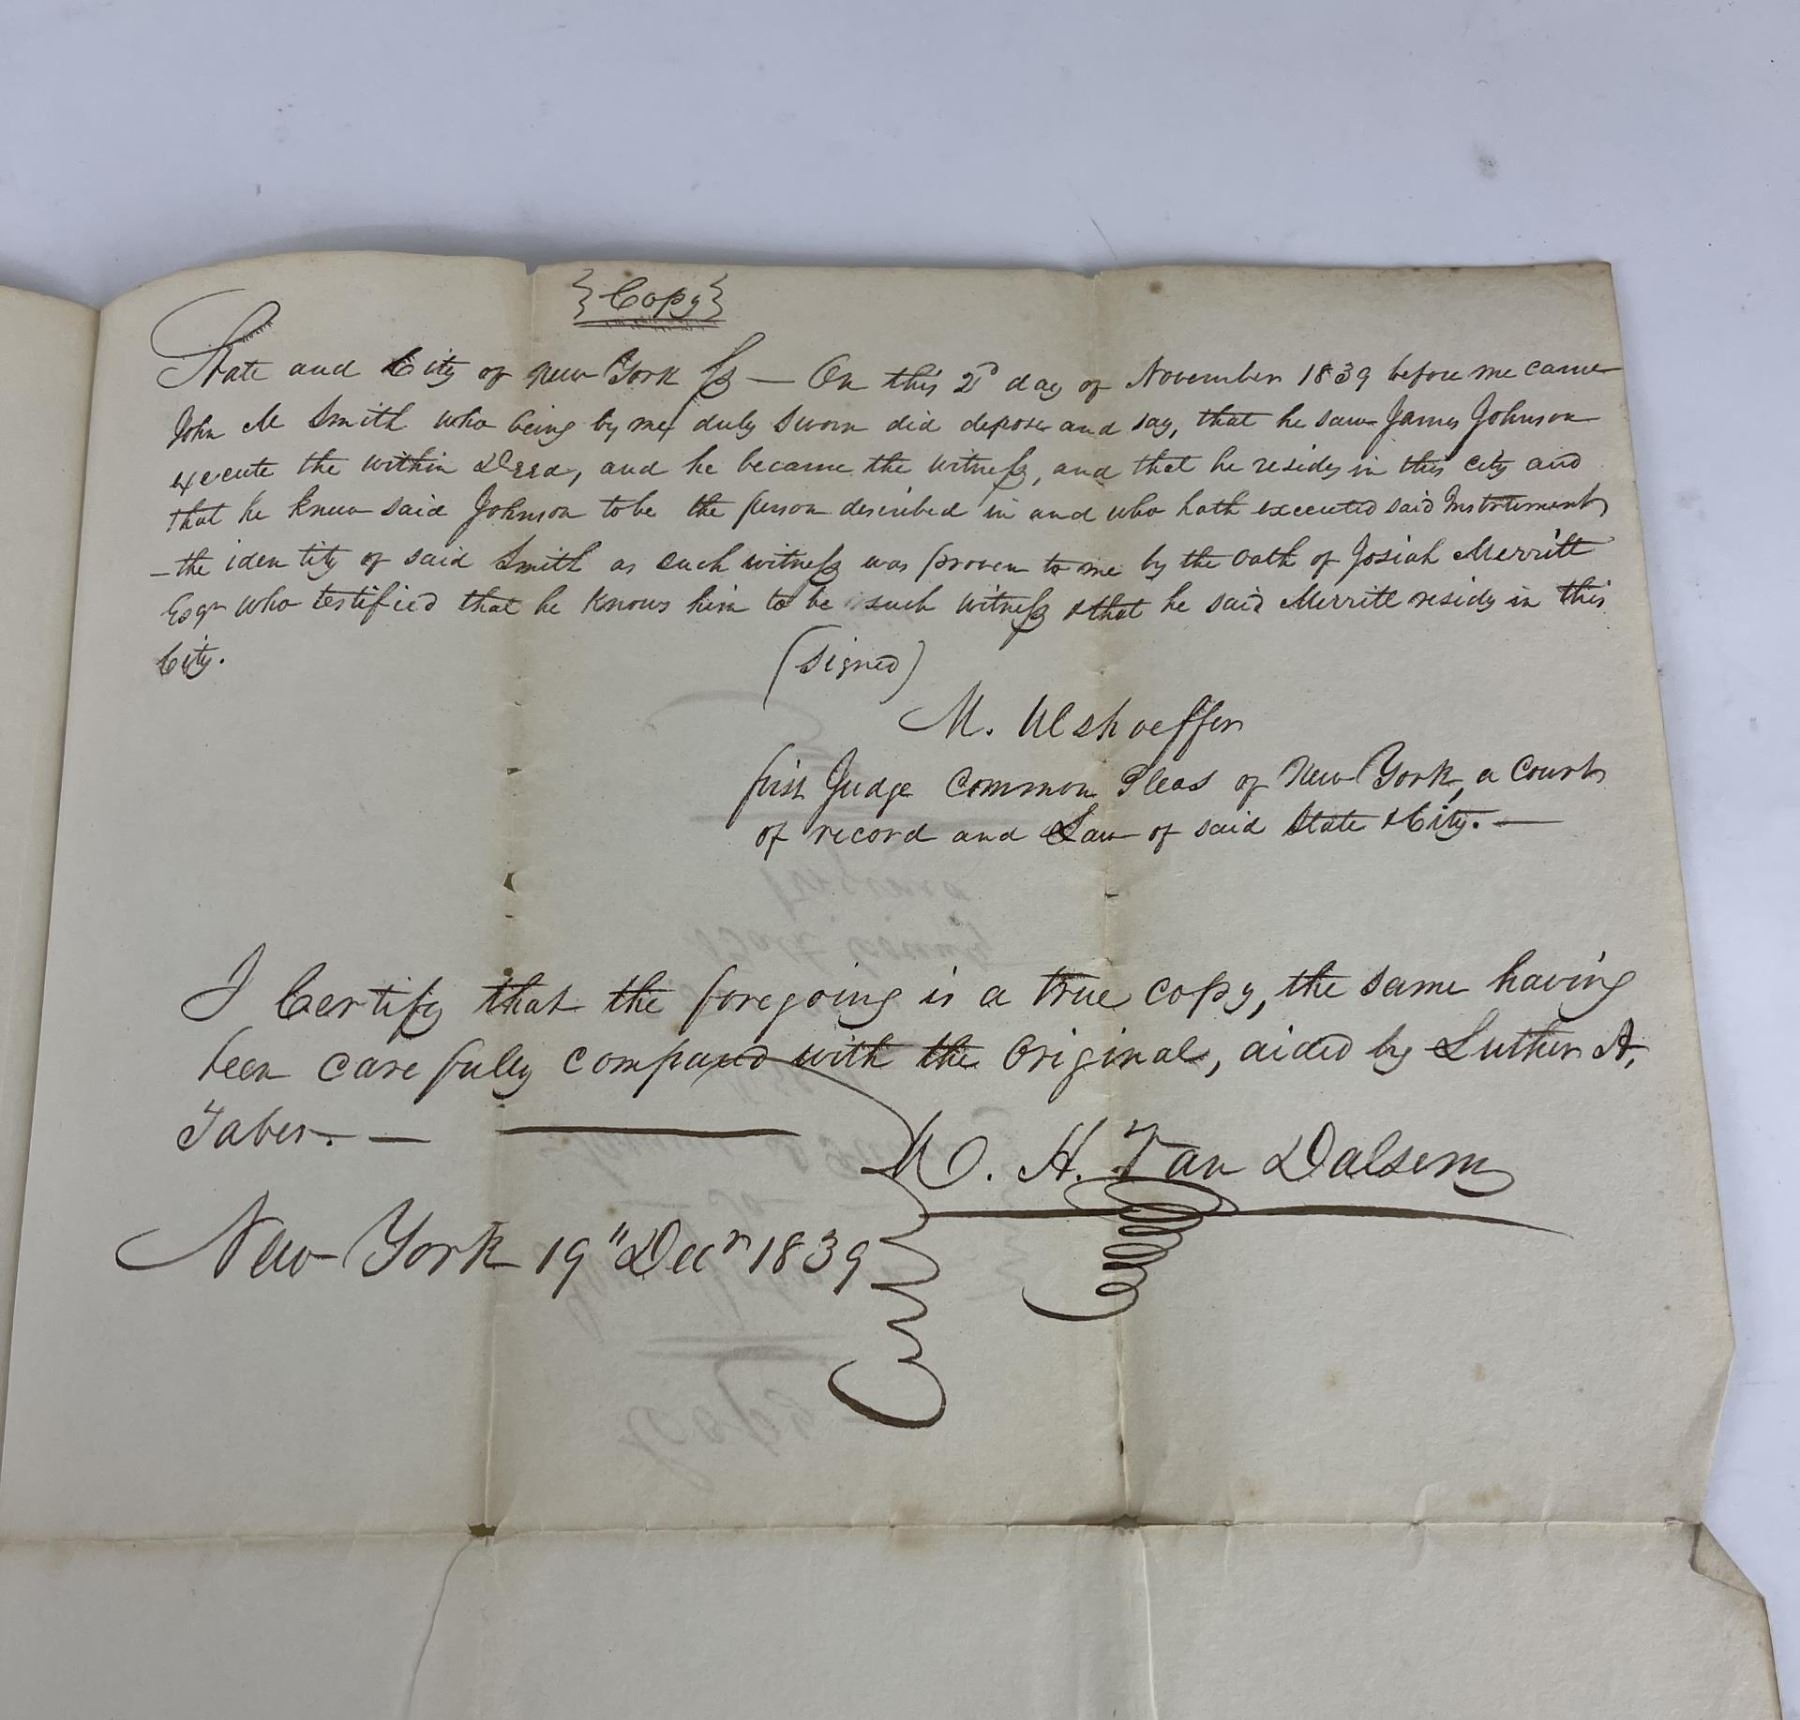 {Copy}
State and City of New York ss — On this 2d day of November 1839 before me came
John M Smith who being by me duly sworn did depose and say, that he saw James Johnson
execute the within Deed, and he became the witness, and that he resides in this city and
that he knew said Johnson to be the person described in and who hath executed said Instrument
— the identity of said Smith as such witness was proven to me by the Oath of Josiah Merritt
Esqr who testified that he knows him to be such witness & that he said Merritt resides in this
City.
(signed)
M. Ulshoeffer
first Judge Common Pleas of New York, a Court
of record and Law of said State & City. —
I Certify that the foregoing is a true copy, the same having
been carefully compared with the Original, aided by Luther A.
Taber. —
W. H. Van Dalsem
New York 19" Decr 1839